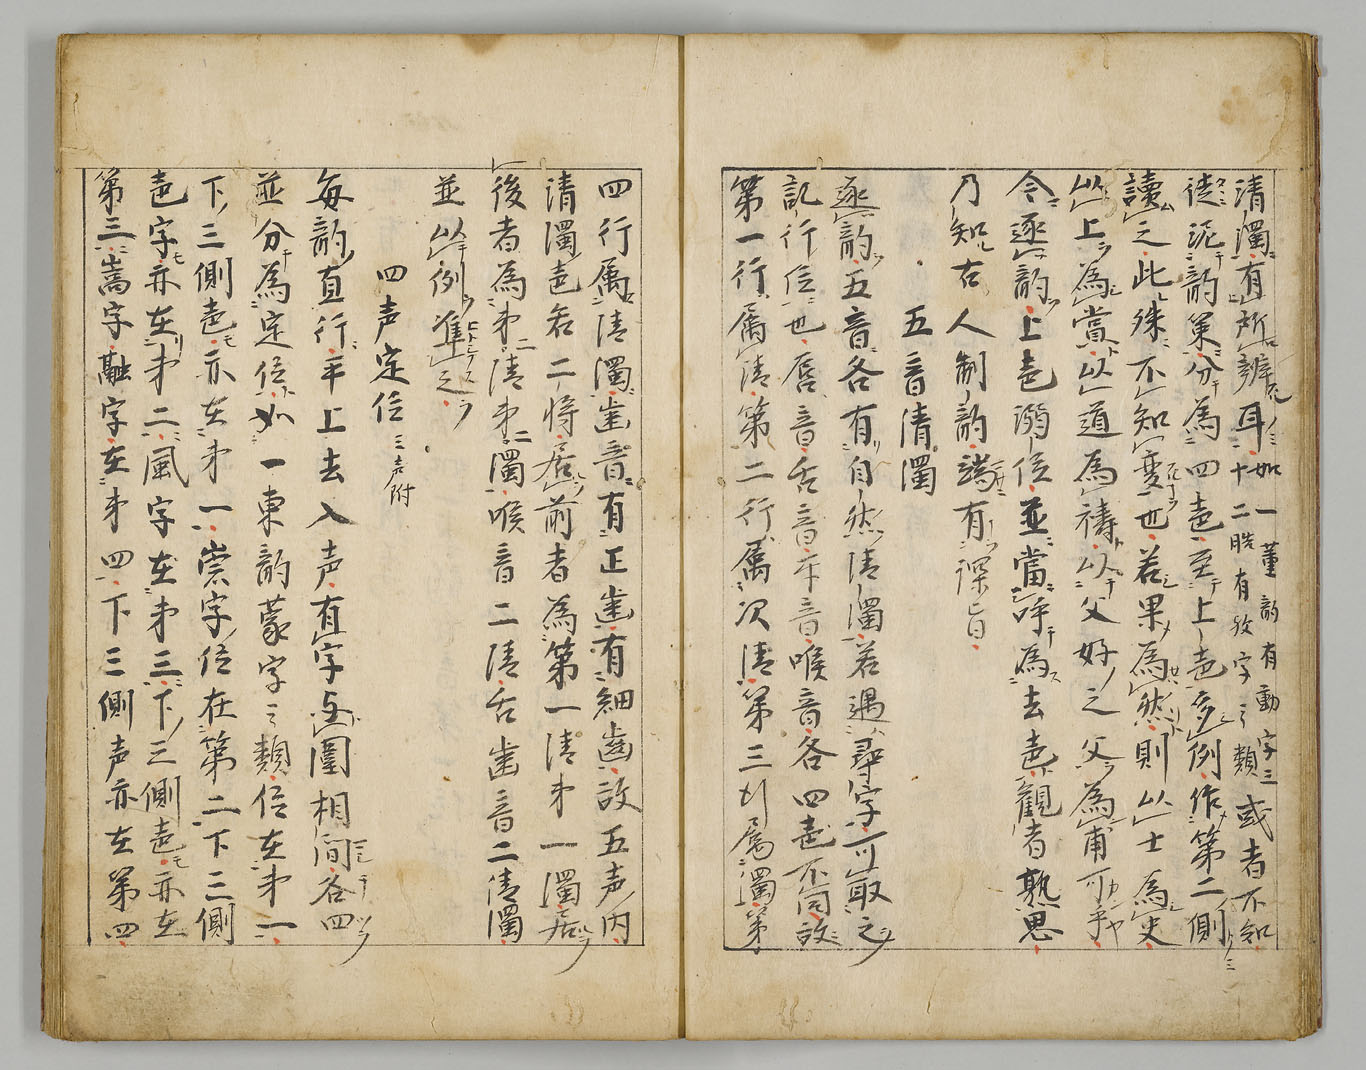 清濁有所辨耳如一董韵有動字三十二晧有攷字之類或者不知
徒泥韵策分為四声至上声多例作第二側
讀之此殊不知変也若果為然則以士為史
以上為賞以道為禱以父好之父為甫可乎
今逐韵上声溺位並當呼為去声観者熟思
乃知古人制韵端有深旨
五音清濁
逐韵五音各有自然清濁若遇尋字可以取之
記行位也唇音舌音牙音喉音各四声不同故
第一行属清第二行属次清第三行属濁第
四行属清濁歯音有正歯有細歯故五声内
清濁声各二将居前者為第一清第一濁居
後者為第二清第二濁喉音二清舌歯音二清濁
並以例準之
四声定位 三声附
每韵直行平上去入声有字与圍相間各四
並分為定位如一東韵蒙字之類位在第一
下三側声亦在第一崇字位在第二下三側
声字亦在第二風字在第三下三側声亦在
第三嵩字融字在第四下三側声亦在第四